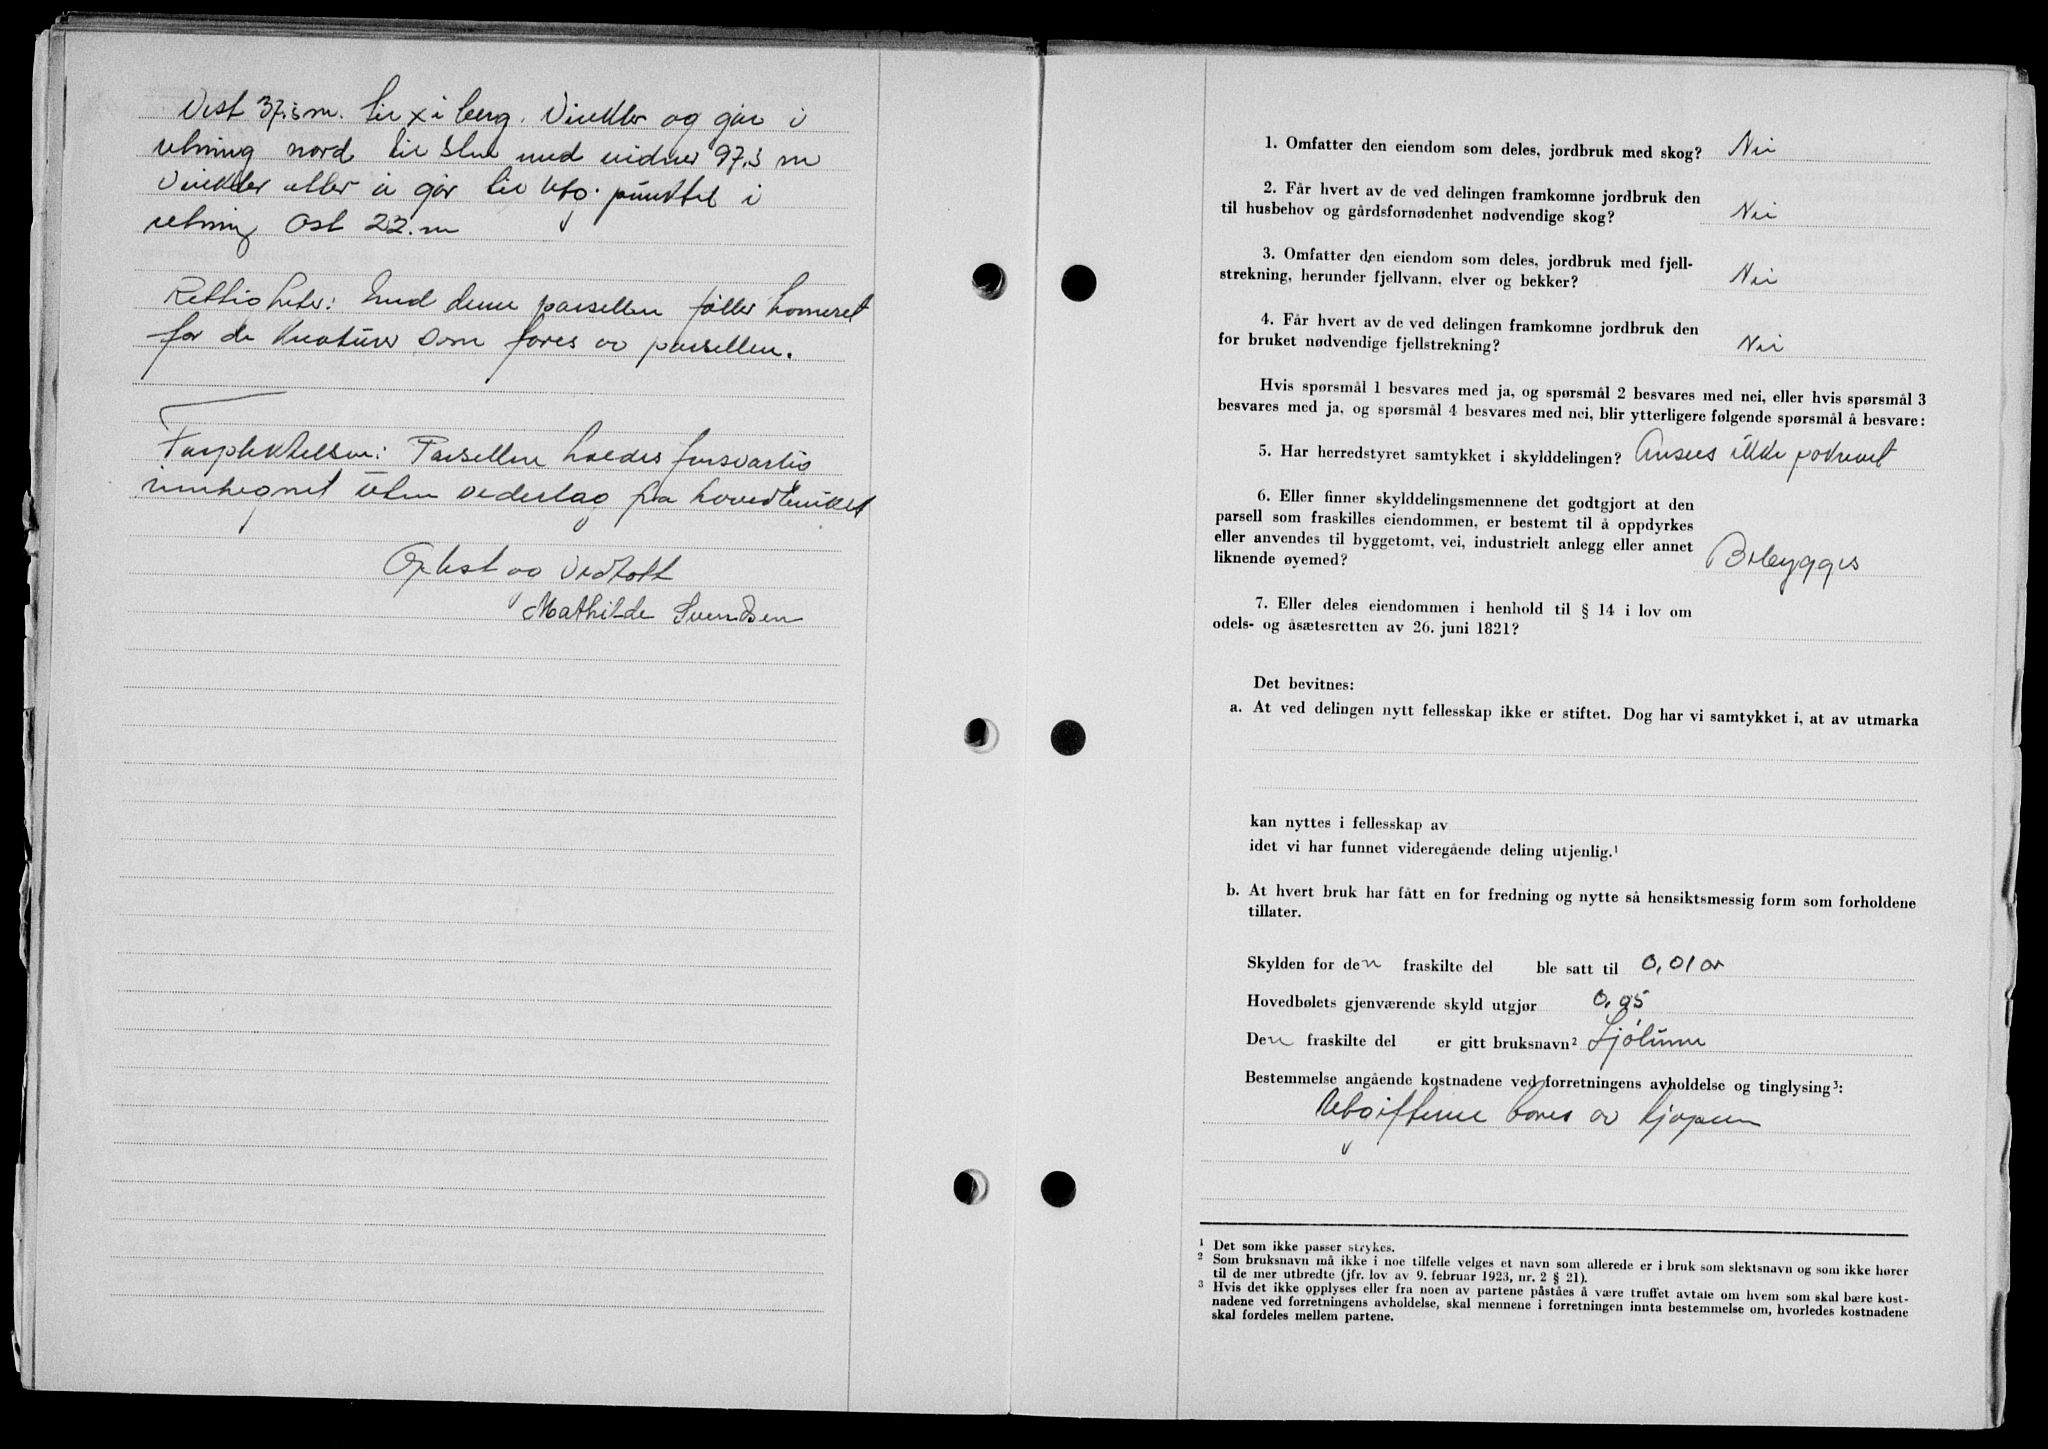 Vest 37,5 m. til x i berg. Vinkler og går i
retning nord til sten med vidner 97,5 m
Vinkler atter å går til Utg. punktet i
retning Ost 22. m
Rettigheter: Med denne parsellen føller havneret
for de kreaturer som fores av parsellen.
Forpliktelser: Parsellen holdes forsvarlig
innhegnet uten vederlag fra hovedbruket
Oplest og vedtatt
Mathilde Svendsen
1. Omfatter den eiendom som deles, jordbruk med skog? Nei
2. Får hvert av de ved delingen framkomne jordbruk den
til husbehov og gårdsfornødenhet nødvendige skog? Nei
3. Omfatter den eiendom som deles, jordbruk med fjell-
strekning, herunder fjellvann, elver og bekker? Nei
4. Får hvert av de ved delingen framkomne jordbruk den
for bruket nødvendige fjellstrekning? Nei
Hvis spørsmål 1 besvares med ja, og spørsmål 2 besvares med nei, eller hvis spørsmål 3
besvares med ja, og spørsmål 4 besvares med nei, blir ytterligere følgende spørsmål å besvare:
5. Har herredstyret samtykket i skylddelingen? Ansees ikke påkrevet
6. Eller finner skylddelingsmennene det godtgjort at den
parsell som fraskilles eiendommen, er bestemt til å oppdyrkes
eller anvendes til byggetomt, vei, industrielt anlegg eller annet
liknende øyemed? Bebygges
7. Eller deles eiendommen i henhold til § 14 i lov om
odels- og åsætesretten av 26. juni 1821?
Det bevitnes:
a. At ved delingen nytt fellesskap ikke er stiftet. Dog har vi samtykket i, at av utmarka
kan nyttes i fellesskap av
idet vi har funnet videregående deling utjenlig.¹
b. At hvert bruk har fått en for fredning og nytte så hensiktsmessig form som forholdene
tillater.
Skylden for den fraskilte del ble satt til 0,01 ør
Hovedbølets gjenværende skyld utgjør 0,95
Den fraskilte del er gitt bruksnavn² Sjøtunn
Bestemmelse angående kostnadene ved forretningens avholdelse og tinglysing³:
Utgifterne bæres av kjøperen
¹ Det som ikke passer strykes.
² Som bruksnavn må ikke i noe tilfelle velges et navn som allerede er i bruk som slektsnavn og som ikke hører
til de mer utbredte (jfr. lov av 9. februar 1923, nr. 2 § 21).
³ Hvis det ikke opplyses eller fra noen av partene påståes å være truffet avtale om hvem som skal bære kost-
nadene ved forretningens avholdelse, skal mennene i forretningen innta bestemmelse om, hvorledes kostnadene
skal fordeles mellem partene.